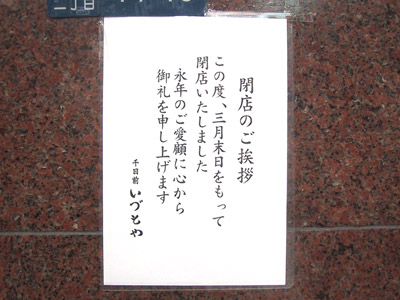 二丁目
閉店のご挨拶
この度、三月末日をもって
閉店いたしました
永年のご愛顧に心から
御礼を申し上げます
千日前 いづもや